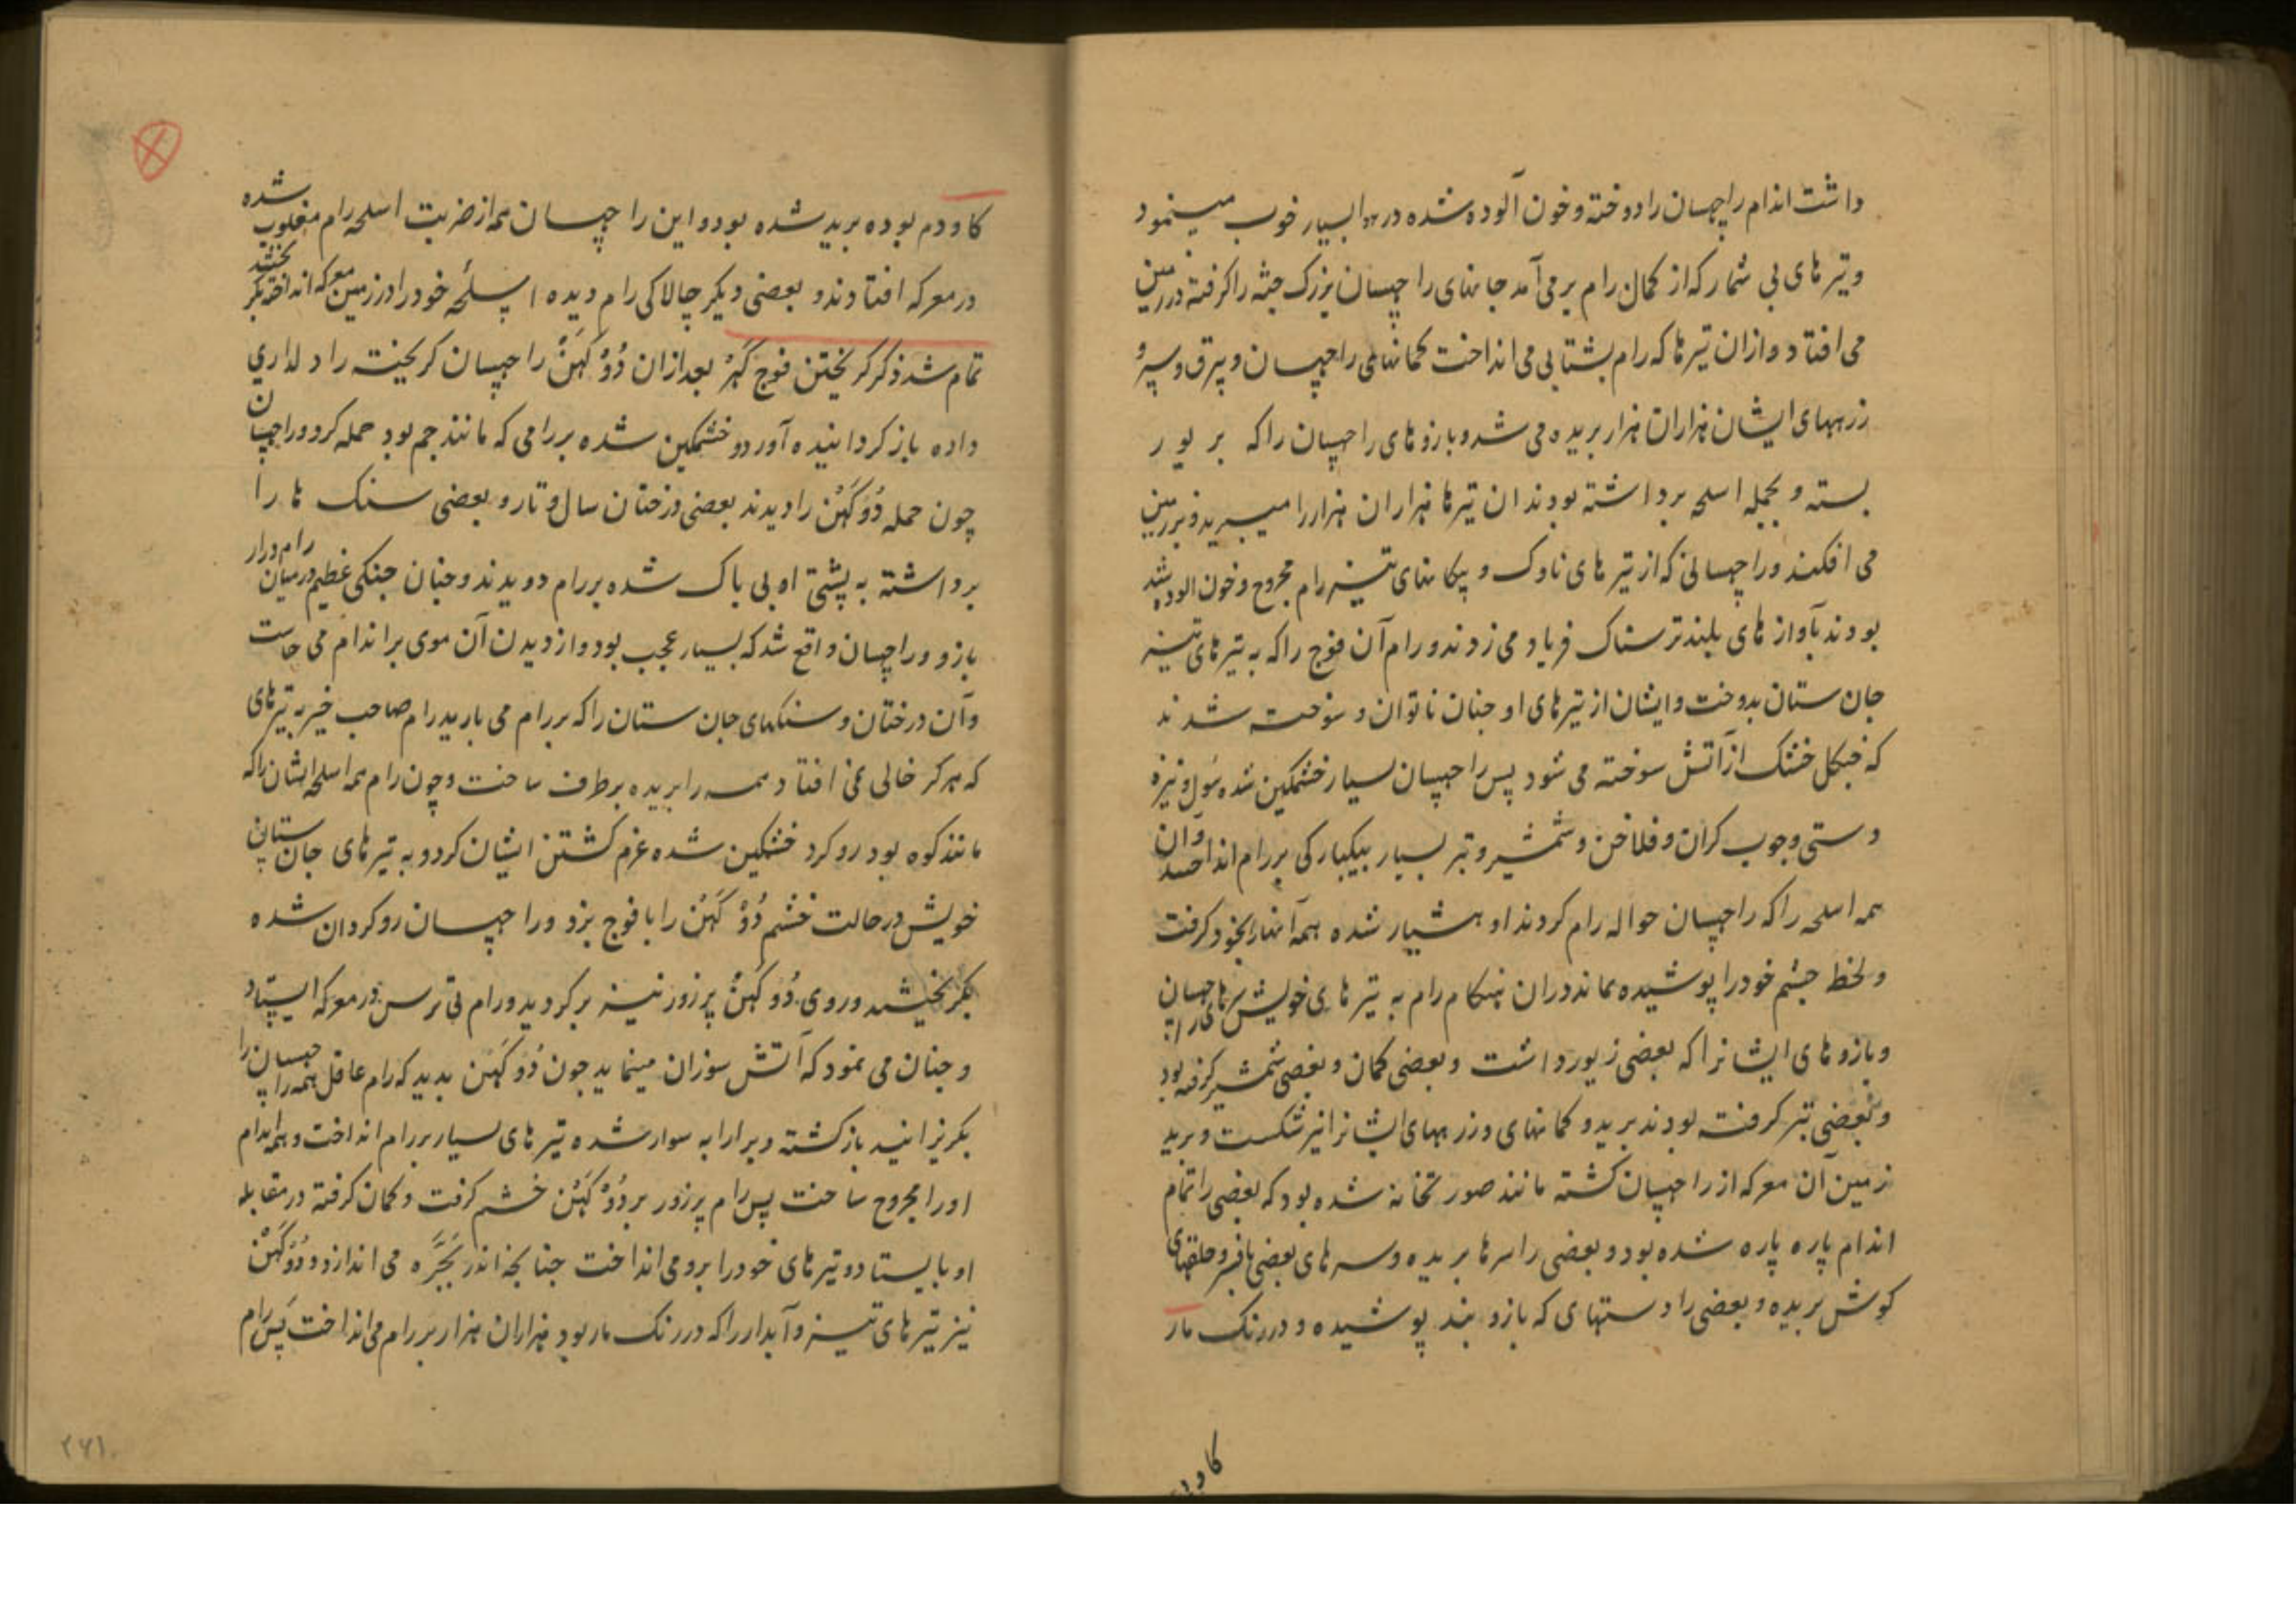 داشت اندام راچسان را دوخته و خون آلوده شده در هوا بسیار خوب مینمود
و تیر های بی شمار که از کمال رام بر می آمد جانهای راچسان بزرک جثه را کرفته در زمین
می افتاد و ازان تیرها که رام بشتابی می انداخت کمانهای راچسان و بیرق و سپر و
زرههای ایشان هزاران هزار بریده می شد و بازوهای راچسان را که بر یور
بسته و بجمله اسلحه برداشته بودند ان تیرها هزاران هزار را میبرید و بر زمین
می افکند و راچسانی که از تیر های ناوک و پیکانهای تیز رام مجروح و خون الود شده
بودند بآواز های بلند ترسناک فریاد می زدند و رام آن فوج را که به تیر های تیز
جان ستان بدوخت و ایشان از تیرهای او چنان ناتوان و سوخت شدند
که جنکل خشک از آتش سوخته می شود پس راچسان بسیار خشمکین شده سول و نیزه
دستی و چوب کران و فلاخن و شمشیر و تبر بسیار بیکبارکی بر رام انداختند و ان
همه اسلحه را که راچسان حواله رام کردند او هشیار شده همه آنها را بخود کرفت
و لحظ چشم خود را پوشیده بماند دران هنکام رام به تیر های خویش سرهای راچسان
و بازو های ایشانرا که بعضی زیور داشت و بعضی کمان و بعضی شمشیر کرفته بود
و بعضی تبر کرفت بودند برید و کمانهای و زرههای ایشانرا نیز شکست و برید
زمین آن معرکه از راچسان کشته مانند صور تخانه شده بود که بعضی را تمام
اندام پاره پاره شده بود و بعضی را سرها بریده و سرهای بعضی با افسر و حلقهای
کوش بریده و بعضی را دستهای که بازو بند پوشیده و در رنک مار
کاودم
کاودم بوده برید شده بود و این راچسان همه از ضربت اسلحه رام مغلوب شده
در معرکه افتادند و بعضی دیکر چالاکی رام دیده اسلحه خود را در زمین معرکه انداخته بکریختند
تمام شد ذکر کریختن فوج کهر بعد ازان دُوُکهَنْ راچسان کریخته را دلداری
داده باز کردانیده آورد و خشمکین شده بر رامی که مانند جم بود حمله کرد و راچسان
چون حمله دُوُکهَنْ را دیدند بعضی درختان سال و تار و بعضی سنک ها را
برداشته به پشتی او بی باک شده بر رام دویدند و چنان جنکی عظیم در میان رام دراز
بازو و راچسان واقع شد که بسیار عجب بود و از دیدن آن موی بر اندام می خاست
و آن درختان و سنکهای جان ستان را که بر رام می بارید رام صاحب خیر به تیرهای
که هرکز خالی نمی افتاد همه را بریده بر طرف ساخت و چون رام همه اسلحه ایشان را که
مانند کوه بود رد کرد خشمکین شده عزم کشتن ایشان کرد و به تیرهای جان ستان
خویش در حالت خشم دُوُکهَنْ را با فوج بزد و راچسان رو کردان شده
بکریختند و روی دُوُکهَنْ پر زور نیز برکردید و رام بی ترس در معرکه ایستاد
و چنان می نمود که آتش سوزان مینماید چون دُوُکهَنْ بدید که رام عاقل همه راچسان را
بکریزانید بازکشته و بر ارابه سوار شده تیر های بسیار بر رام انداخت و همه اندام
او را مجروح ساخت پس رام پر زور بر دُوُکهَنْ خشم کرفت و کمان کرفته در مقابله
او بایستاد و تیرهای خود را برو می انداخت چنانچه اندر بَجَّره می اندازد و دُوُکهَنْ
نیز تیر های تیز و آبدار را که در رنک مار بود هزاران هزار بر رام می انداخت پس رام
۲۶۱